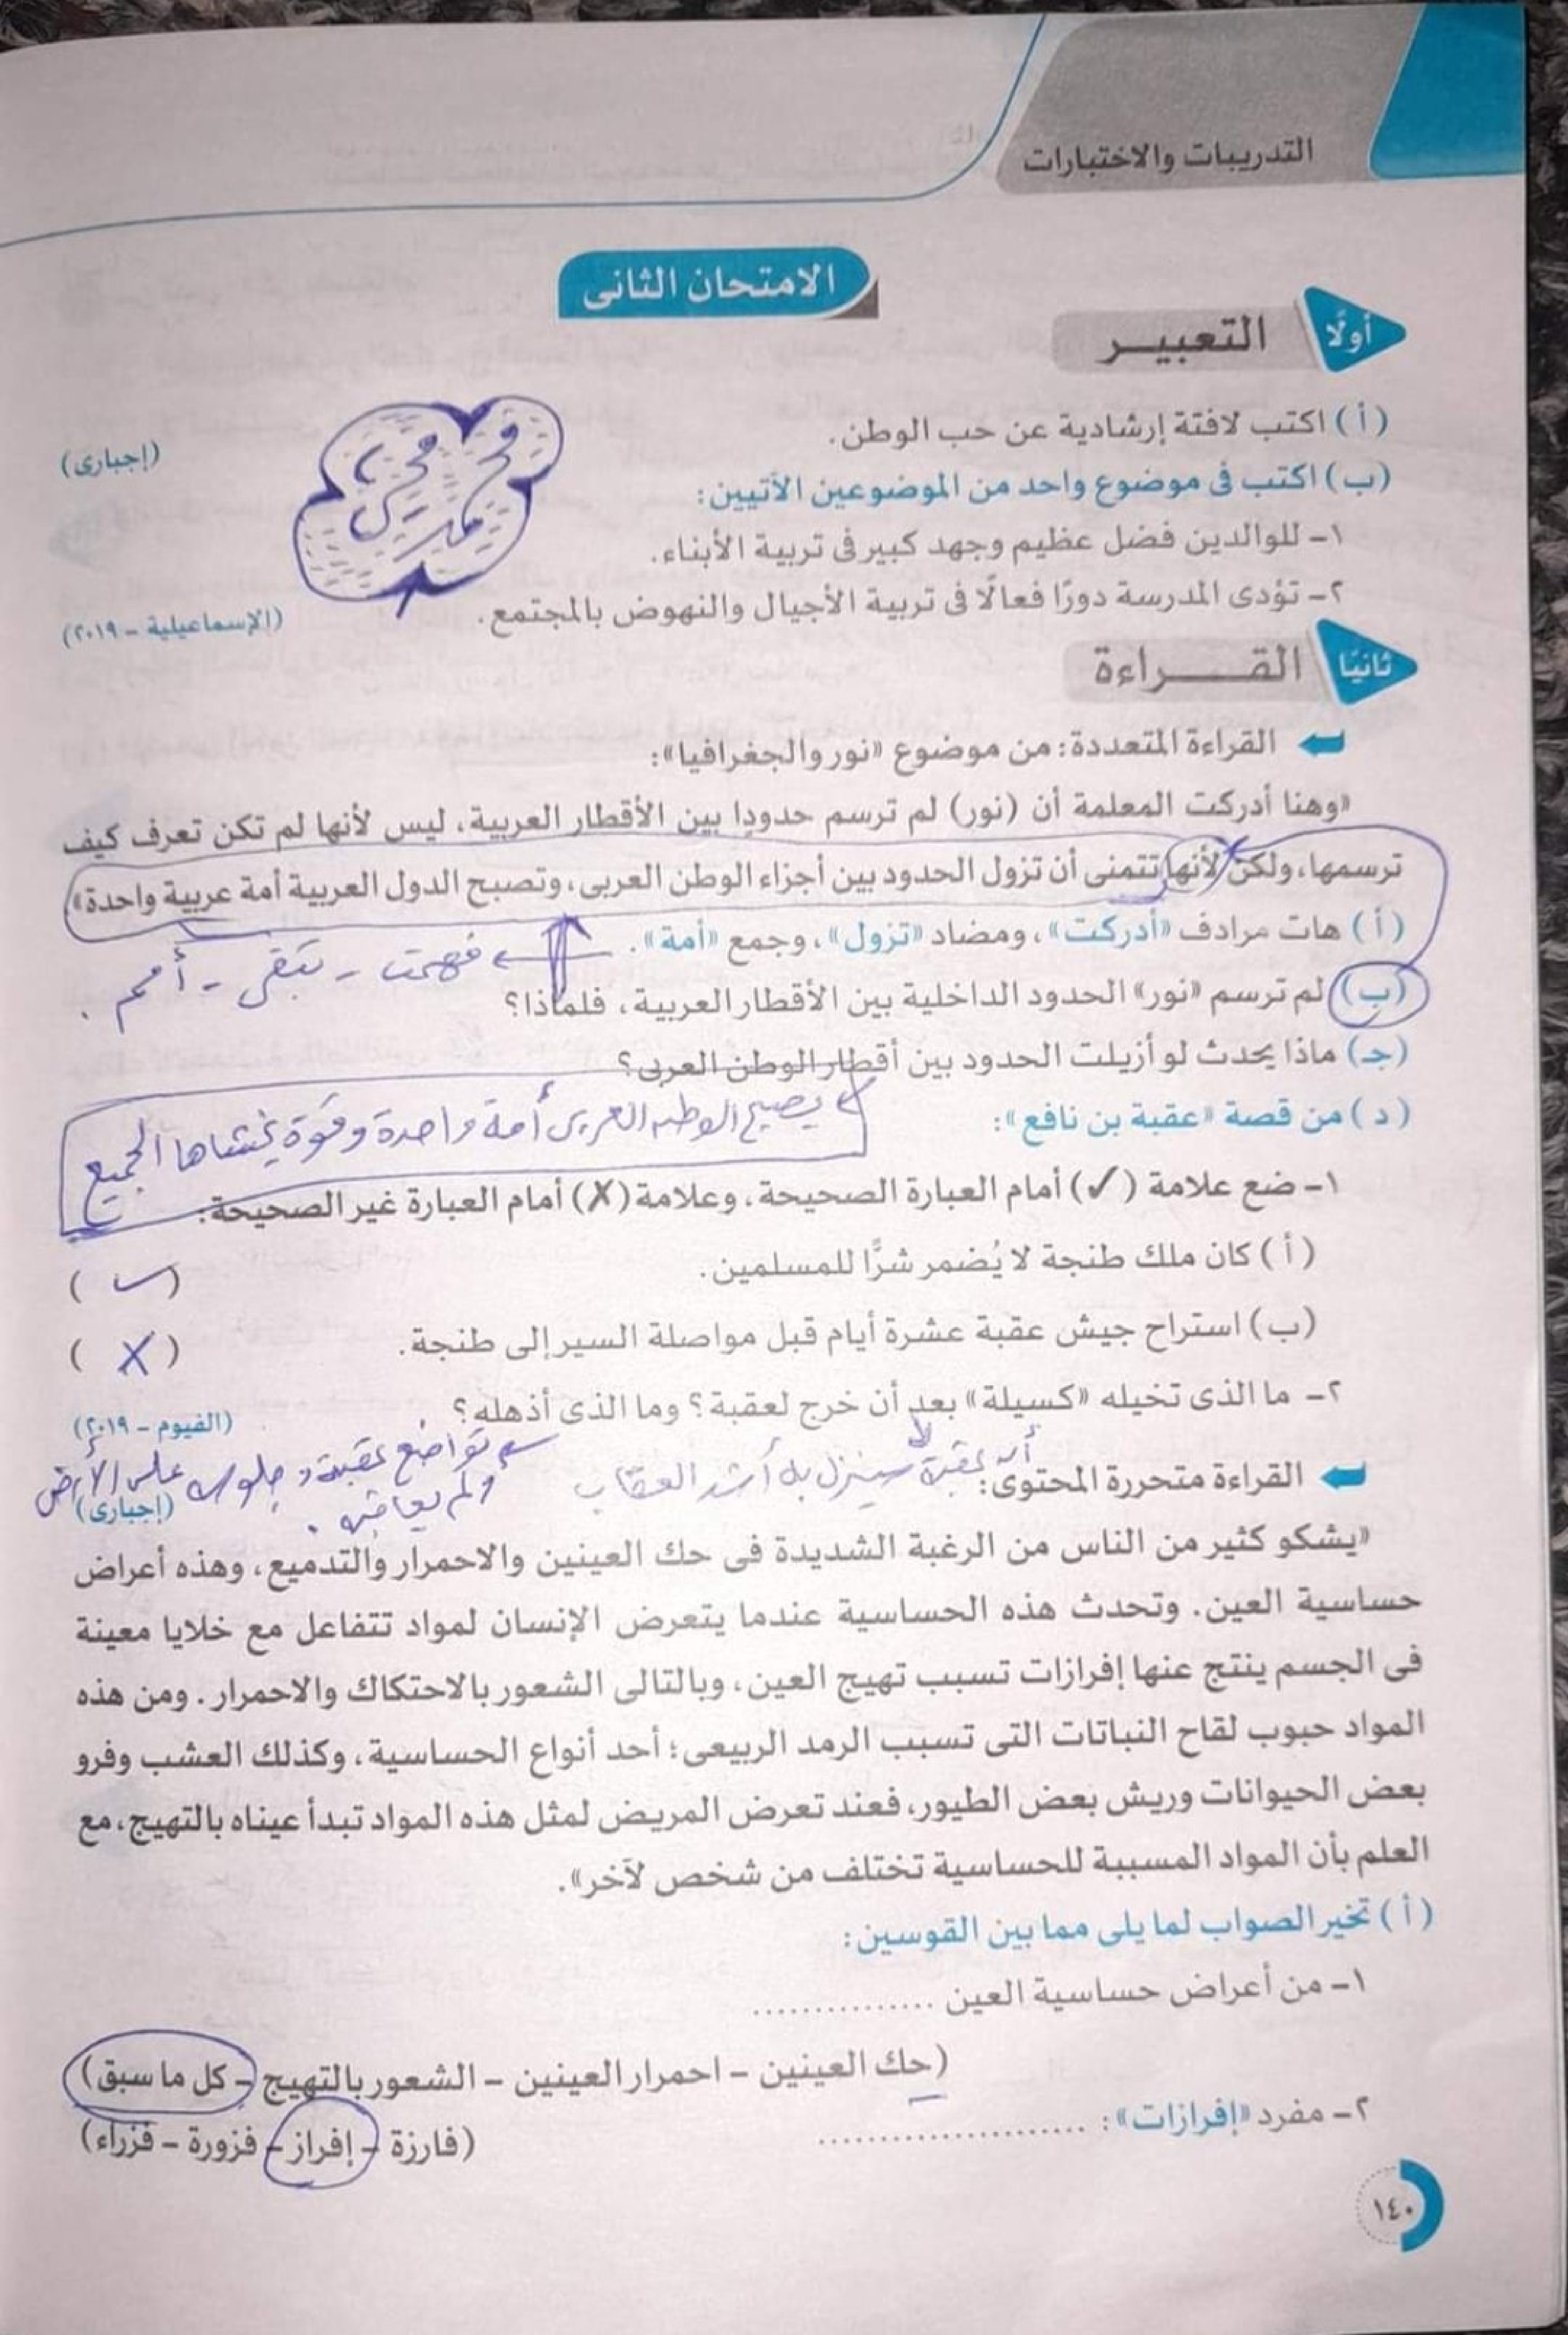 التدريبات والاختبارات
الامتحان الثانى
أولًا
التعبيــر
(أ) اكتب لافتة إرشادية عن حب الوطن.
(إجبارى)
(ب) اكتب فى موضوع واحد من الموضوعين الآتيين:
١- للوالدين فضل عظيم وجهد كبير فى تربية الأبناء.
٢- تؤدى المدرسة دورًا فعالًا فى تربية الأجيال والنهوض بالمجتمع.
(الإسماعيلية - ٢٠١٩)
ثانيًا
القــــراءة
القراءة المتعددة: من موضوع «نور والجغرافيا»:
«وهنا أدركت المعلمة أن (نور) لم ترسم حدودا بين الأقطار العربية، ليس لأنها لم تكن تعرف كيف
ترسمها، ولكن لأنها تتمنى أن تزول الحدود بين أجزاء الوطن العربى، وتصبح الدول العربية أمة عربية واحدة»
(أ) هات مرادف «أدركت»، ومضاد «تزول»، وجمع «أمة».
فهمت - تبقى - أمم .
(ب) لم ترسم «نور» الحدود الداخلية بين الأقطار العربية، فلماذا؟
(جـ) ماذا يحدث لو أزيلت الحدود بين أقطار الوطن العربى؟
يصبح الوطن العربى أمة واحدة وقوة يخشاها الجميع
(د) من قصة «عقبة بن نافع»:
١- ضع علامة (✓) أمام العبارة الصحيحة، وعلامة (✗) أمام العبارة غير الصحيحة:
(أ) كان ملك طنجة لا يُضمر شرًّا للمسلمين.
(✓)
(ب) استراح جيش عقبة عشرة أيام قبل مواصلة السير إلى طنجة.
(✗)
٢- ما الذى تخيله «كسيلة» بعد أن خرج لعقبة؟ وما الذى أذهله؟
(الفيوم - ٢٠١٩)
أن عقبة سينزل به أشد العقاب
تواضع عقبة وجلوسه على الأرض
ولم يعاقبه .
القراءة متحررة المحتوى:
(إجبارى)
«يشكو كثير من الناس من الرغبة الشديدة فى حك العينين والاحمرار والتدميع، وهذه أعراض
حساسية العين. وتحدث هذه الحساسية عندما يتعرض الإنسان لمواد تتفاعل مع خلايا معينة
فى الجسم ينتج عنها إفرازات تسبب تهيج العين، وبالتالى الشعور بالاحتكاك والاحمرار. ومن هذه
المواد حبوب لقاح النباتات التى تسبب الرمد الربيعى؛ أحد أنواع الحساسية، وكذلك العشب وفرو
بعض الحيوانات وريش بعض الطيور، فعند تعرض المريض لمثل هذه المواد تبدأ عيناه بالتهيج، مع
العلم بأن المواد المسببة للحساسية تختلف من شخص لآخر».
(أ) تخير الصواب لما يلى مما بين القوسين:
١- من أعراض حساسية العين ...............
(حك العينين - احمرار العينين - الشعور بالتهيج - كل ما سبق)
٢- مفرد «إفرازات»: ......................
(فارزة - إفراز - فزورة - فزراء)
١٤٠